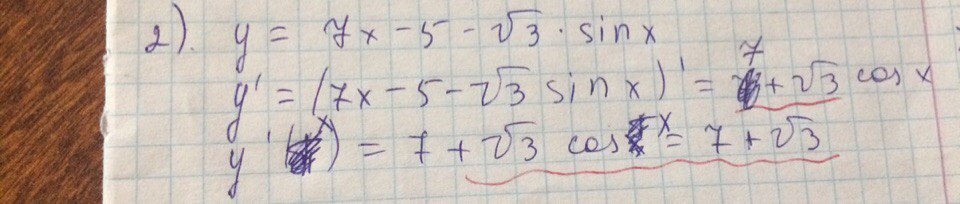 2). y = 7x - 5 - √3 · sin x
y' = (7x - 5 - √3 sin x)' = 7 + √3 cos x
y'(x) = 7 + √3 cos x = 7 + √3